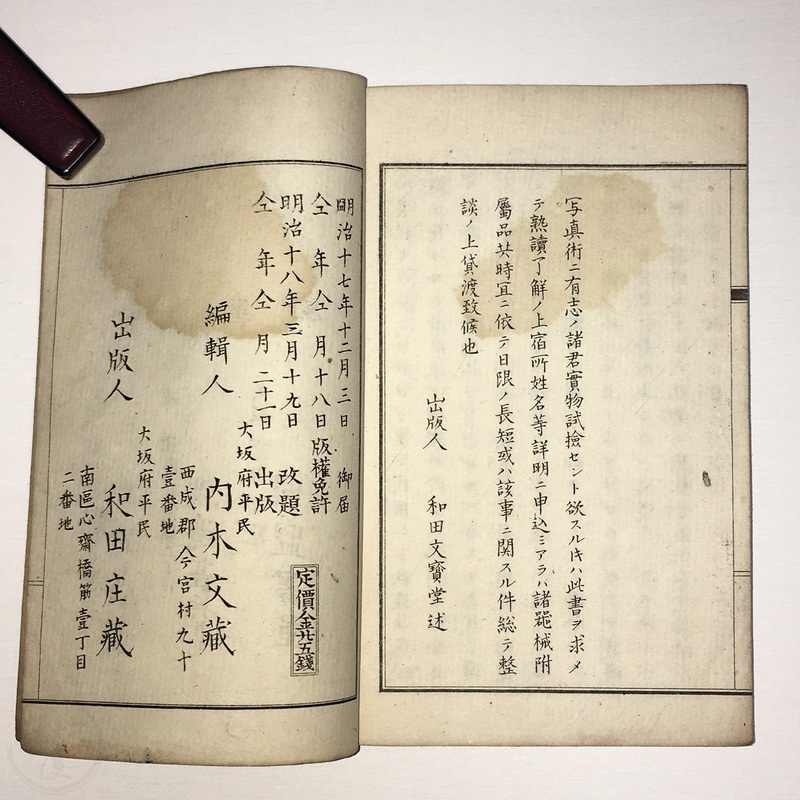 写真術ニ有志ノ諸君實物試撿セント欲スルキハ此書ヲ求メ
テ熟讀了解ノ上宿所姓名等詳明ニ申込ミアラハ諸器械附
屬品共時宜ニ依テ日限ノ長短或ハ該事ニ関スル件総テ整
談ノ上貸渡致候也
出版人 和田文寶堂 述
明治十七年十二月三日 御届
仝年仝月十八日 版權免許
明治十八年三月十九日 改題
仝年仝月二十一日 出版
定價金廿五錢
大坂府平民
編輯人 内木文藏
西成郡今宮村九十
壹番地
大坂府平民
出版人 和田庄藏
南區心齋橋筋壹丁目
二番地